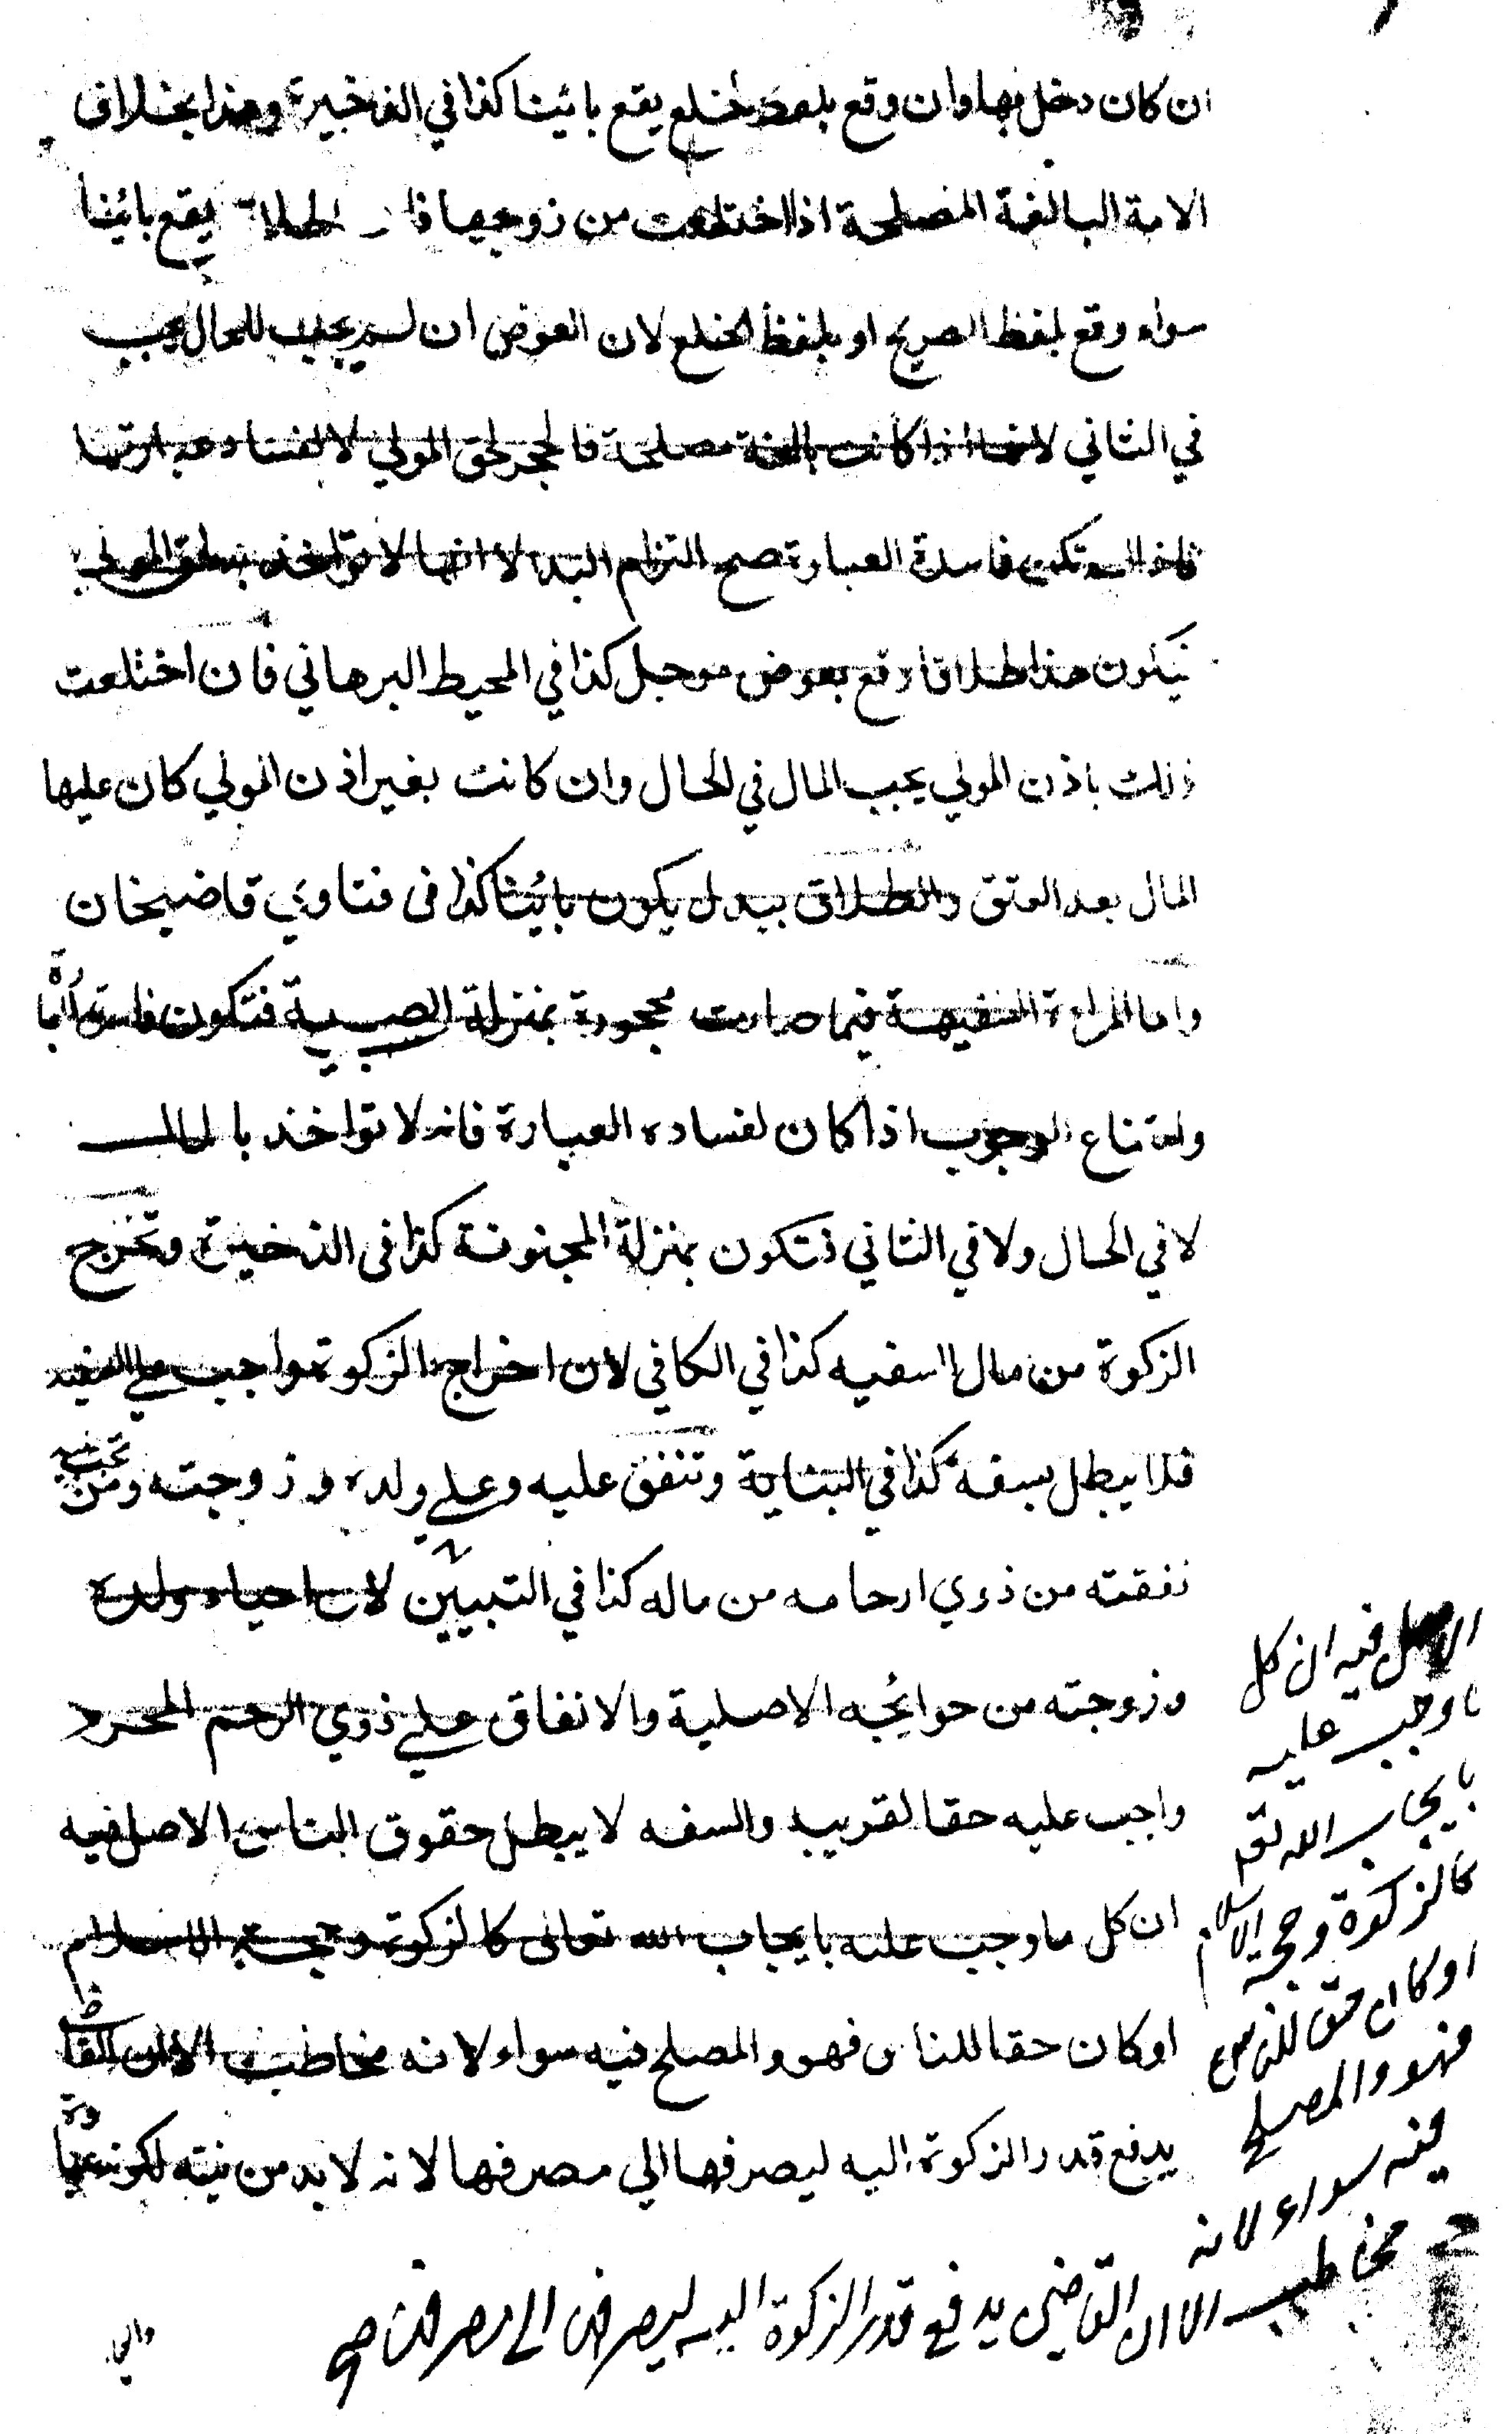 ان كان دخل بها وان وقع بلفظ الخلع يقع بائنا كذا في الذخيرة وهذا بخلاف
الامة البالغة المصلحة اذا اختلعت من زوجها يقع بائنا
سواء وقع بلفظ الصريح او بلفظ الخلع لان العوض ان لم يجب للحال يجب
في الثاني لانها اذا كانت بالغة مصلحة فالحجر لحق المولي لا لفساد عبارتها
فاذا لم تكن فاسدة العبارة صح التزام البدل الا انها لا تؤاخذ به لحق المولي
فيكون هذا طلاقا وقع بعوض موجل كذا في المحيط البرهاني فان اختلعت
ذلك باذن المولي يجب المال في الحال وان كانت بغير اذن المولي كان عليها
المال بعد العتق والطلاق ببدل يكون بائنا كذا في فتاوي قاضيخان
واما المراة السفيهة فيما صارت محجورة بمنزلة الصبية فتكون
وامتناع الوجوب اذا كان لفساده العبارة فانه لا تواخذ بالمال
لا في الحال ولا في الثاني فتكون بمنزلة المجنونة كذا في الذخيرة وتخرج
الزكوة من مال السفيه كذا في الكافي لان اخراج الزكوة واجب علي السفيه
فلا يبطل بسفه كذا في البناية وتنفق عليه وعلي ولده وزوجته ومن تجب
نفقته من ذوي ارحامه من ماله كذا في التبيين لان احياء ولده
وزوجته من حوائجه الاصلية والانفاق علي ذوي الرحم المحرم
واجب عليه حقا لقريبه والسفه لا يبطل حقوق الناس الاصل فيه
ان كل ما وجب عليه بايجاب الله تعالى كالزكوة وحجة الاسلام
او كان حقا للناس فهو والمصلح فيه سواء لانه مخاطب الا ان القاضي
يدفع قدر الزكوة اليه ليصرفها الي مصرفها لانه لا بد من نيته لكونه عبادة
الاصل فيه ان كل
ما وجب عليه
بايجاب الله تع
كالزكوة وحجة الاسلام
او كان حق للناس
فهو والمصلح
فيه سواء لانه
مخاطب الا ان القاضي يدفع قدر الزكوة اليه ليصرفها الي مصرفها صح